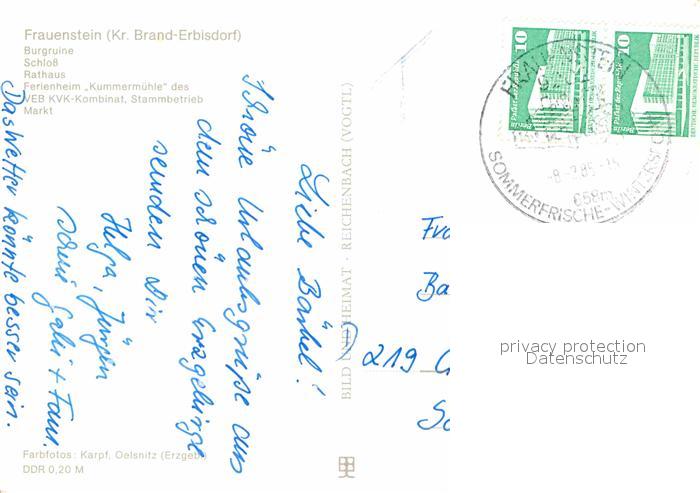 Frauenstein (Kr. Brand-Erbisdorf)
Burgruine
Schloß
Rathaus
Ferienheim „Kummermühle“ des
VEB KVK-Kombinat, Stammbetrieb
Markt
Liebe Bärbel!
Schöne Urlaubsgrüße aus
dem schönen Erzgebirge
senden Dir
Helga, Jürgen
sowie Gabi + Fam.
Das Wetter könnte besser sein.
BILD HEIMAT · REICHENBACH (VOGTL)
10
10
Berlin Palast der Republik
Berlin Palast der Republik
658m
SOMMERFRISCHE-WINTERSPO
Ba
219
privacy protection
Datenschutz
Farbfotos: Karpf, Oelsnitz (Erzgeb.)
DDR 0,20 M